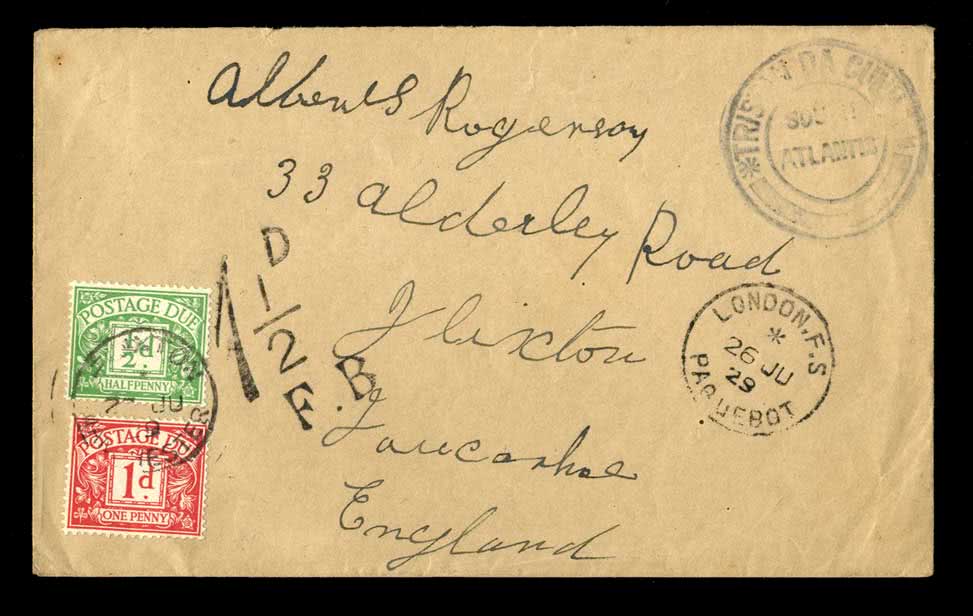 Albert S Rogerson
33 Alderley Road
Flixton
Lancashire
England
*TRISTAN DA CUNHA
SOUTH
ATLANTIC
LONDON.F.S
*
26 JU
29
PAQUEBOT
1 1/2 D
F.B
POSTAGE DUE
½d.
HALFPENNY
JU
POSTAGE DUE
1d.
ONE PENNY